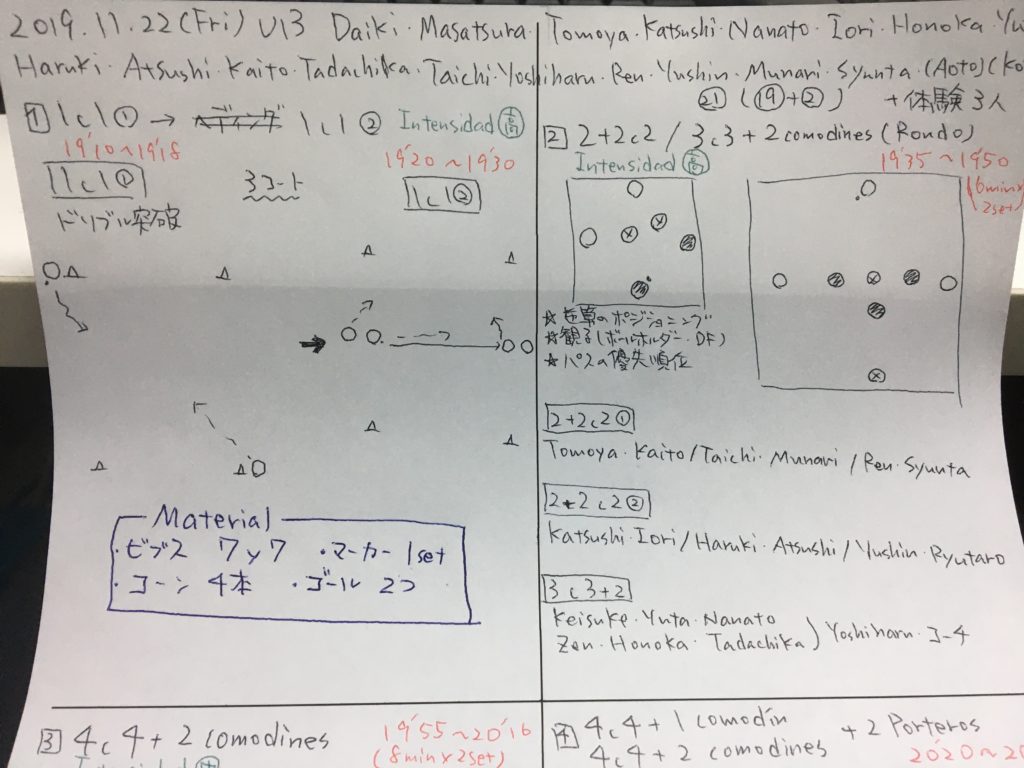 2019.11.22(Fri) U13 Daiki・Masatsura・Tomoya・Katsushi・Nanato・Iori・Honoka・Yu
Haruki・Atsushi・Kaito・Tadachika・Taichi・Yoshiharu・Ren・Yushin・Munari・Syunta・(Aoto)(Ko
㉑ (⑲+②) +体験3人
1 1c1① → ヘディング 1c1② Intensidad 高
19'10~19'18
1c1① 3コート
19'20~19'30
1c1②
ドリブル突破
Material
・ビブス 7y7 ・マーカー 1set
・コーン 4本 ・ゴール 2つ
2 2+2c2 / 3c3+2comodines (Rondo)
Intensidad 高
19'35~19'50
(6min×2set)
☆のポジショニング
☆観る(ボールホルダー・DF)
☆パスの優先順位
2+2c2①
Tomoya・Kaito/Taichi・Munari/Ren・Syunta
2+2c2②
Katsushi・Iori/Haruki・Atsushi/Yushin・Ryutaro
3c3+2
Keisuke・Yuta・Nanato
Zen・Honoka・Tadachika) Yoshiharu・コーチ
3 4c4+2comodines
19'55~20'16
(8min×2set)
4 4c4+1comodín
4c4+2comodines
+2 Porteros
20'20~20